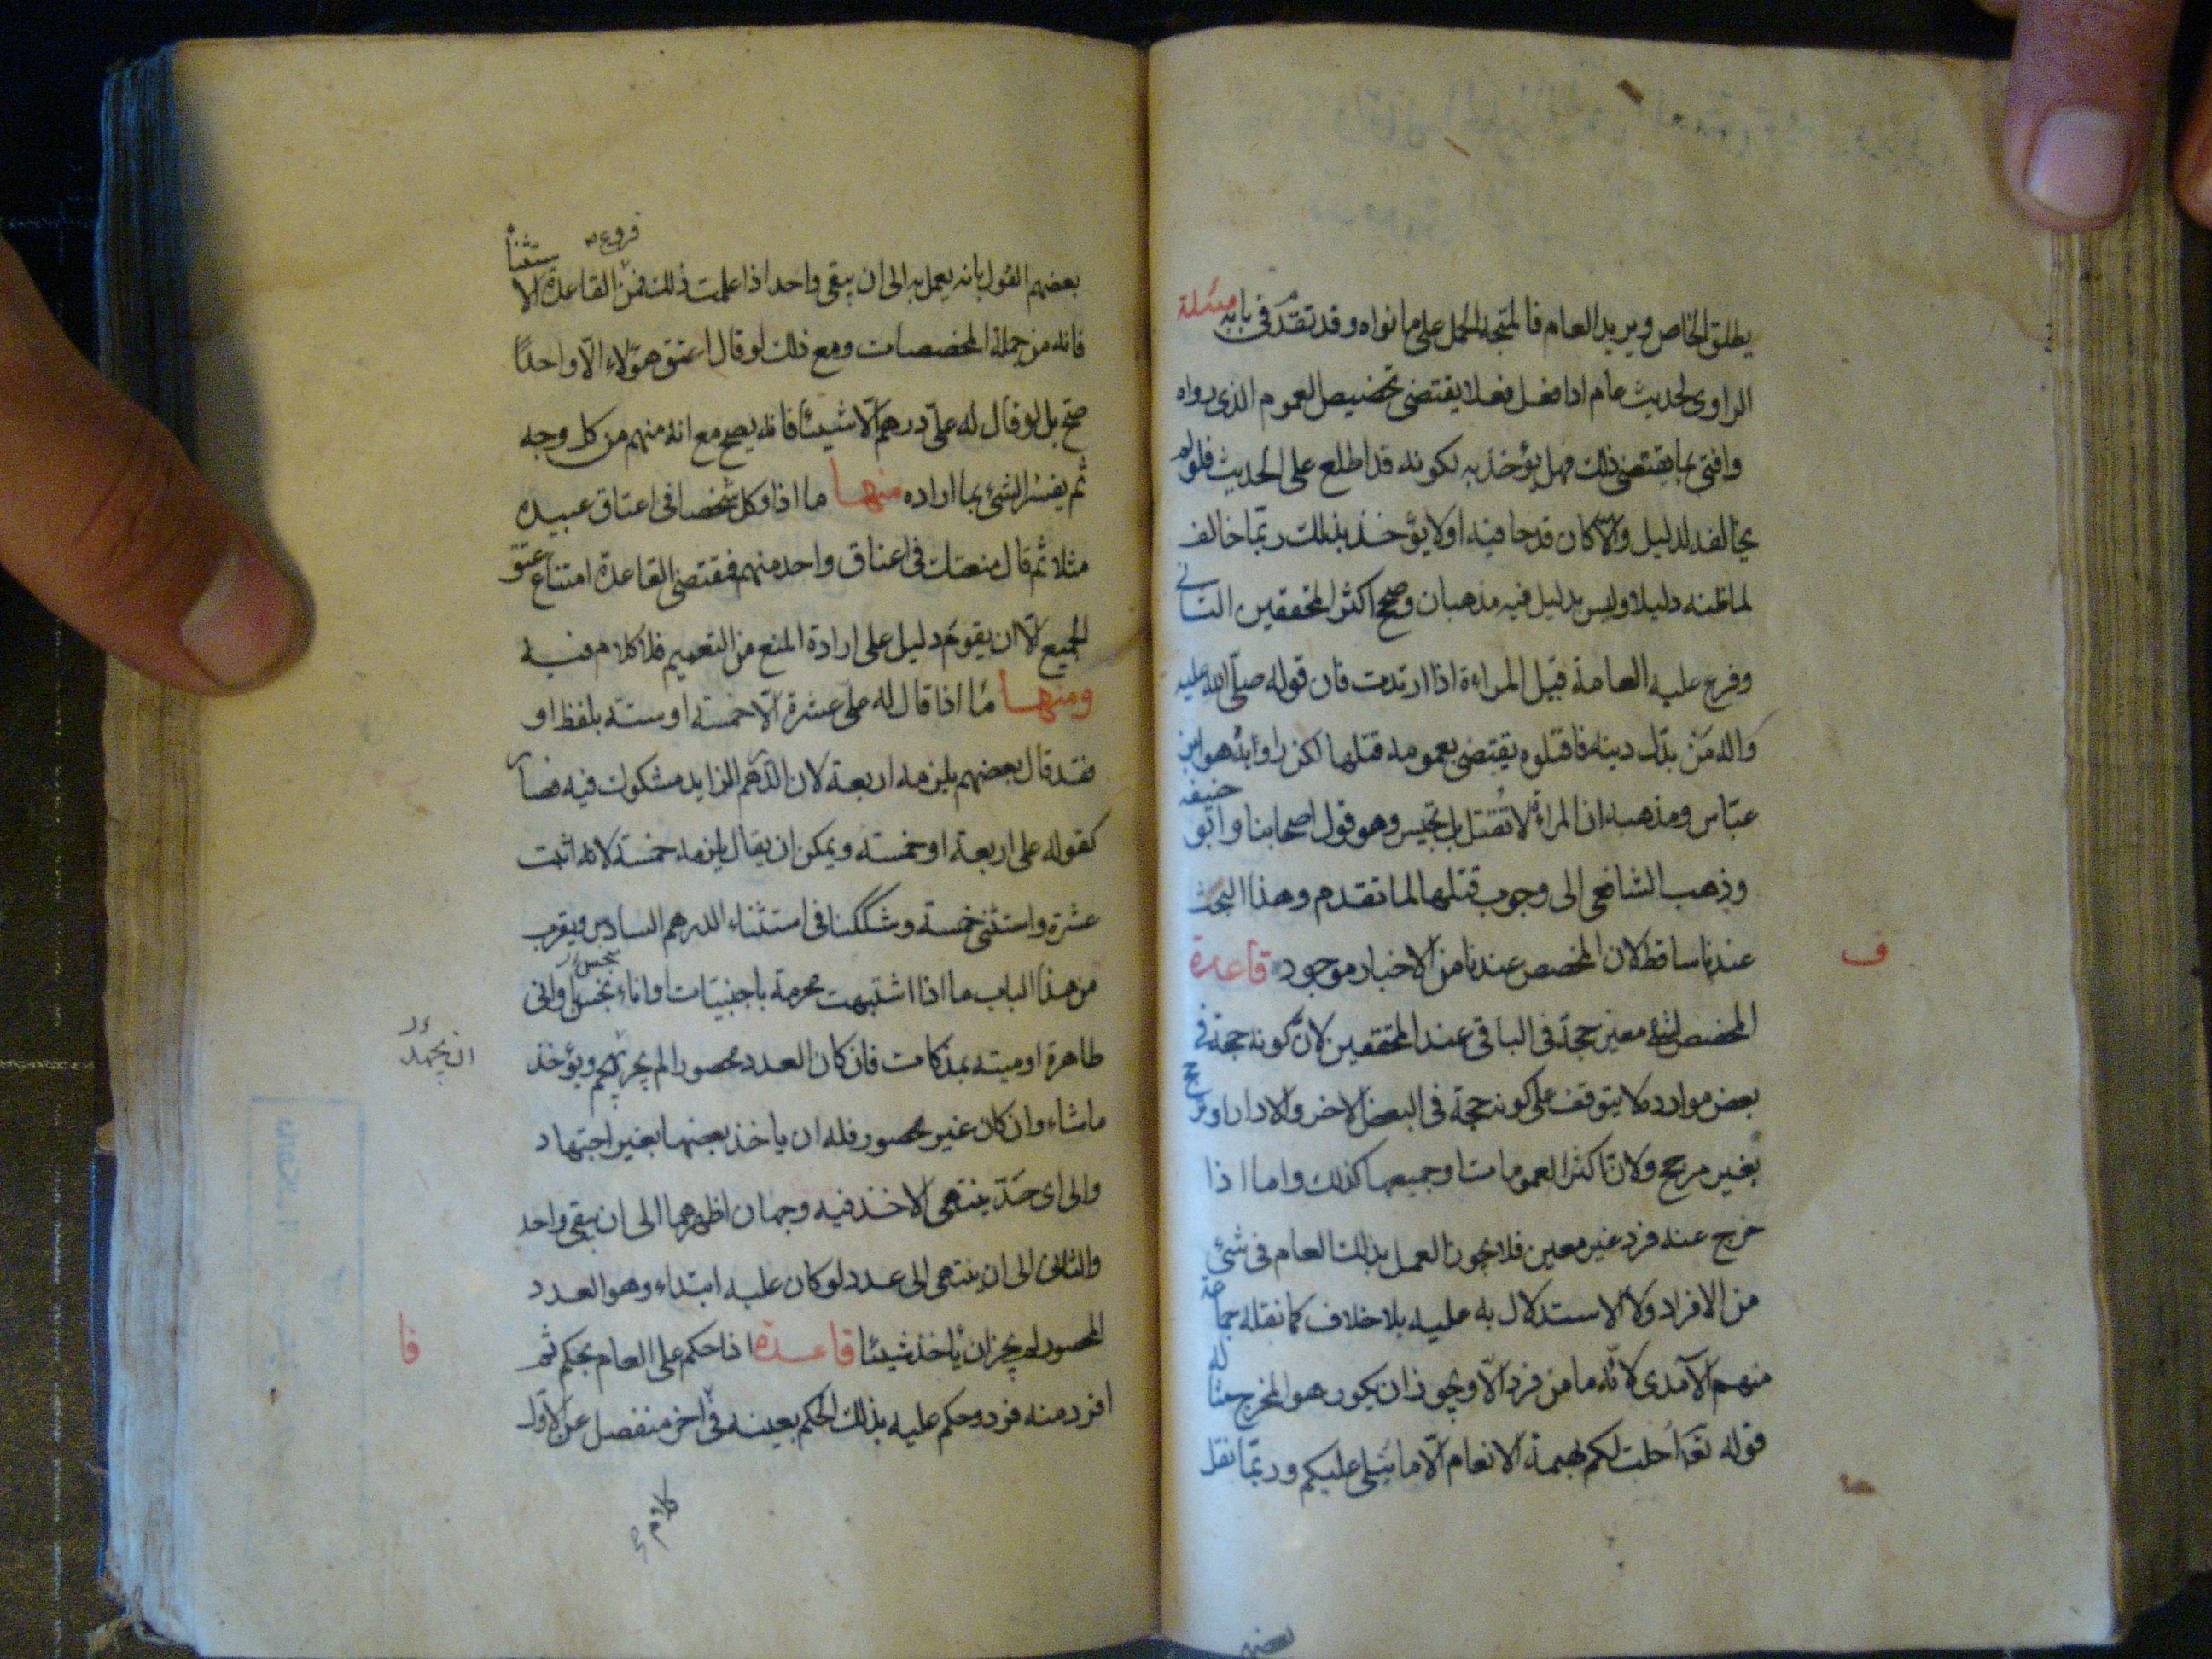 يطلق الخاص ويريد العام فالمتجه الحمل على ما نواه وقد تقدم في بابه مسئلة
الراوى لحديث عام اذا فعل فعلا يقتضى تخصيص العموم الذى رواه
وافتى بما يقتضى ذلك فهل يؤخذ به لكونه قد اطلع على الحديث فلو لم
يخالفه لدليل والا كان قدحا فيه او لا يؤخذ بذلك ربما خالف
لما ظنه دليلا وليس بدليل فيه مذهبان وصحح اكثر المحققين الثانى
وفرع عليه العامة قتل المراءة اذا ارتدت فان قوله صلى الله عليه
واله من بدل دينه فاقتلوه يقتضى بعمومه قتلها لكن راوايه هو ابن
عباس ومذهبه ان المراة لا تقتل بل تحبس وهو قول اصحابنا وابو حنيفه
وذهب الشافعى الى وجوب قتلها لما تقدم وهذا البحث
عندنا ساقط لان المخصص عندنا من الاخبار موجود قاعدة
ف
المخصص لشئ معين حجة فى الباقى عند المحققين لان كونه حجة فى
بعض موارده لا يتوقف على كونه حجة فى البعض الاخر والا دار او ترجيح
بغير مرجح ولان اكثر العمومات او جميعها كذلك واما اذا
خرج عنه فرد غير معين فلا يجوز العمل بذلك العام فى شئ
من الافراد ولا الاستدلال به عليه بلا خلاف كما نقله جماعة
منهم الآمدى لانه ما من فرد الا ويجوز ان يكون هو المخرج مثاله
قوله تعالى احلت لكم بهيمة الانعام الا ما يتلى عليكم وربما نقل
بعضهم
بعضهم القول بانه يعمل به الى ان يبقى واحد اذا علمت ذلك فمن فروع القاعدة الاستثناء
فانه من جملة المخصصات ومع ذلك لو قال اعتق هؤلاء الا واحدا
صح بل لو قال له على درهم الا شيئا فانه يصح مع انه منهم من كل وجه
ثم يفسر الشئ بما اراده منها ما اذا وكل شخصا فى اعتاق عبيده
مثلا ثم قال منعتك فى اعتاق واحد منهم فمقتضى القاعدة امتناع عتق
الجميع الا ان يقوم دليل على ارادة المنع من التعميم فلا كلام فيه
ومنها ما اذا قال له على عشرة الا خمسة او ستة بلفظ او
فقد قال بعضهم يلزمه اربعة لان الدرهم الزايد مشكوك فيه فصار
كقوله على اربعة او خمسة ويمكن ان يقال يلزمه خمسة لانه اثبت
عشرة واستثنى خمسة وشككنا فى استثناء الدرهم السادس ويقرب
من هذا الباب ما اذا اشتبهت محرمة باجنبيات او اناء نجس باوانى
طاهرة او ميتة بمذكات فان كان العدد محصورا لم يجز الهجم ويؤخذ
ما شاء وان كان غير محصور فله ان ياخذ بعضها بغير اجتهاد
والى اى حد ينتهى الاخذ فيه وجهان اظهرهما الى ان يبقى واحد
والثانى الى ان ينتهى الى عدد لو كان عليه ابتداء وهو العدد
المحصور لم يجز ان ياخذ شيئا قاعدة اذا حكم على العام بحكم ثم
فا
افرد منه فرد وحكم عليه بذلك الحكم بعينه فى اخر منفصل عن الاول
كلام